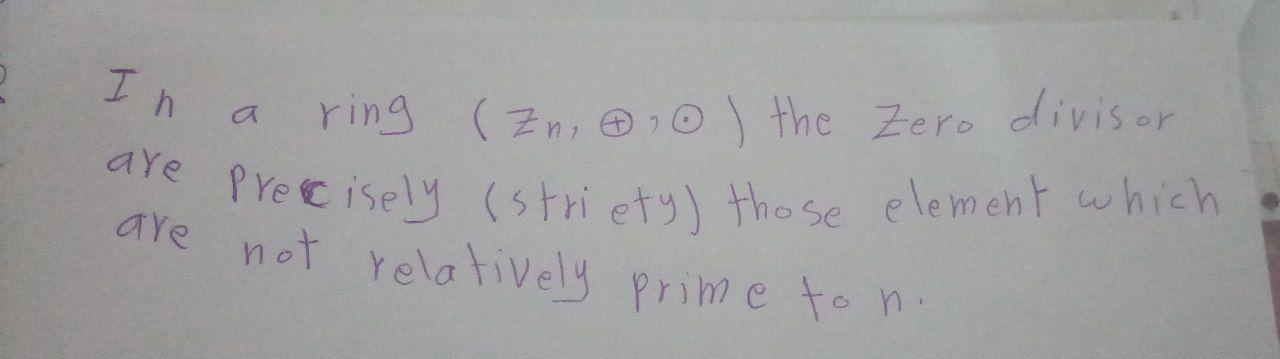 In a ring (Zn, ⊕, ⊙) the Zero divisor
are precisely (stri ety) those element which
are not relatively prime to n.